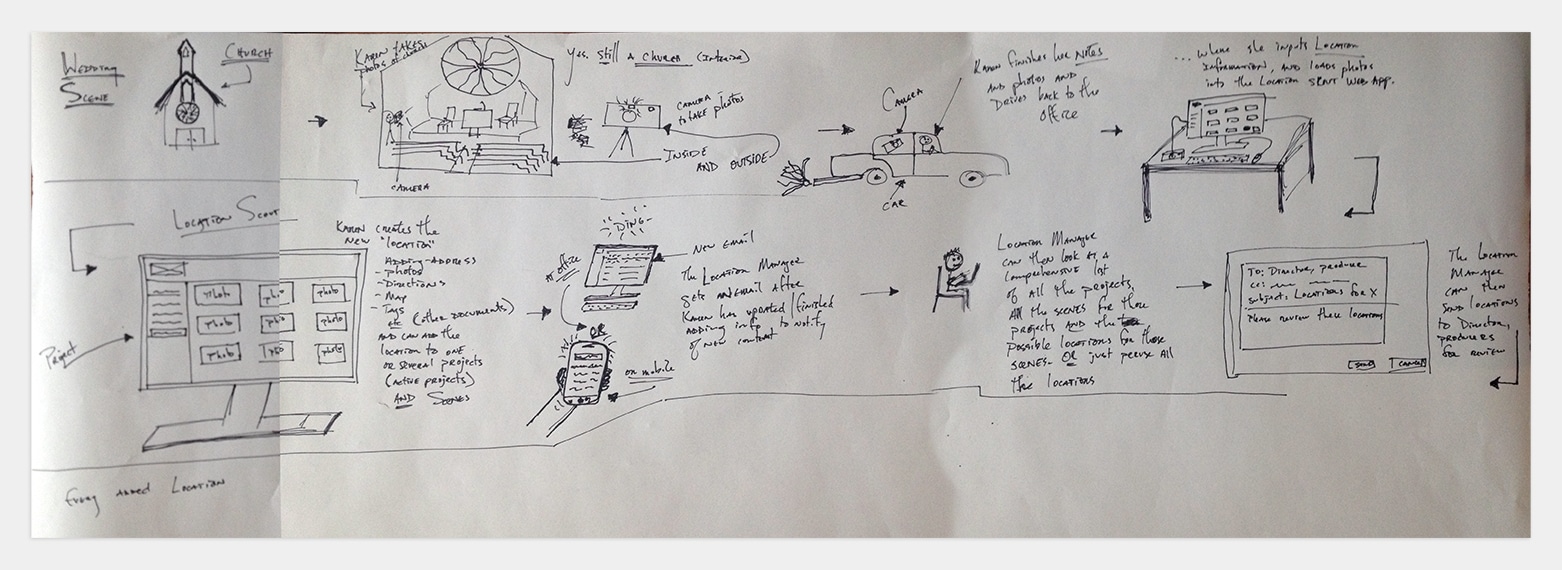 Wedding
Scene
Church
Karen takes
photos of church
Yes, still a church (interior)
camera
camera
to take photos
Inside
and outside
Camera
car
Karen finishes her notes
and photos and
drives back to the
office
...where she inputs Location
Information, and loads photos
into the Location Scout Web App.
Location Scout
Project
photo
photo
photo
photo
photo
photo
photo
photo
photo
Karen creates the
new "location"
Adding-address
- photos
- Directions
- Map
- Tags
etc (other documents)
and can add the
location to one
or several projects
(active projects)
and scenes
Ding-
@ office
OR
on mobile
New email
The Location Manager
gets an email after
Karen has updated/finished
adding info to notify
of new content
Location Manager
can then look at a
comprehensive list
of all the projects,
all the scenes for those
projects and the
possible locations for those
scenes- OR just peruse all
the locations
To: Director, produce
cc:
subject: Locations for X
Please review these locations
Send
Cancel
The Location
Manager
can then
send locations
to Director,
producers
for review
Every added Location